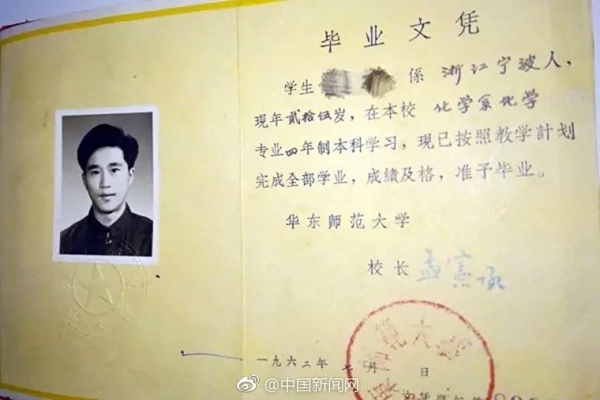 毕业文凭
学生 係 浙江宁波人，
现年贰拾伍岁，在本校 化学系化学
专业四年制本科学习，现已按照教学計划
完成全部学业，成绩及格，准予毕业。
华东师范大学
校长 孟宪承
一九六二年 月 日
@中国新闻网